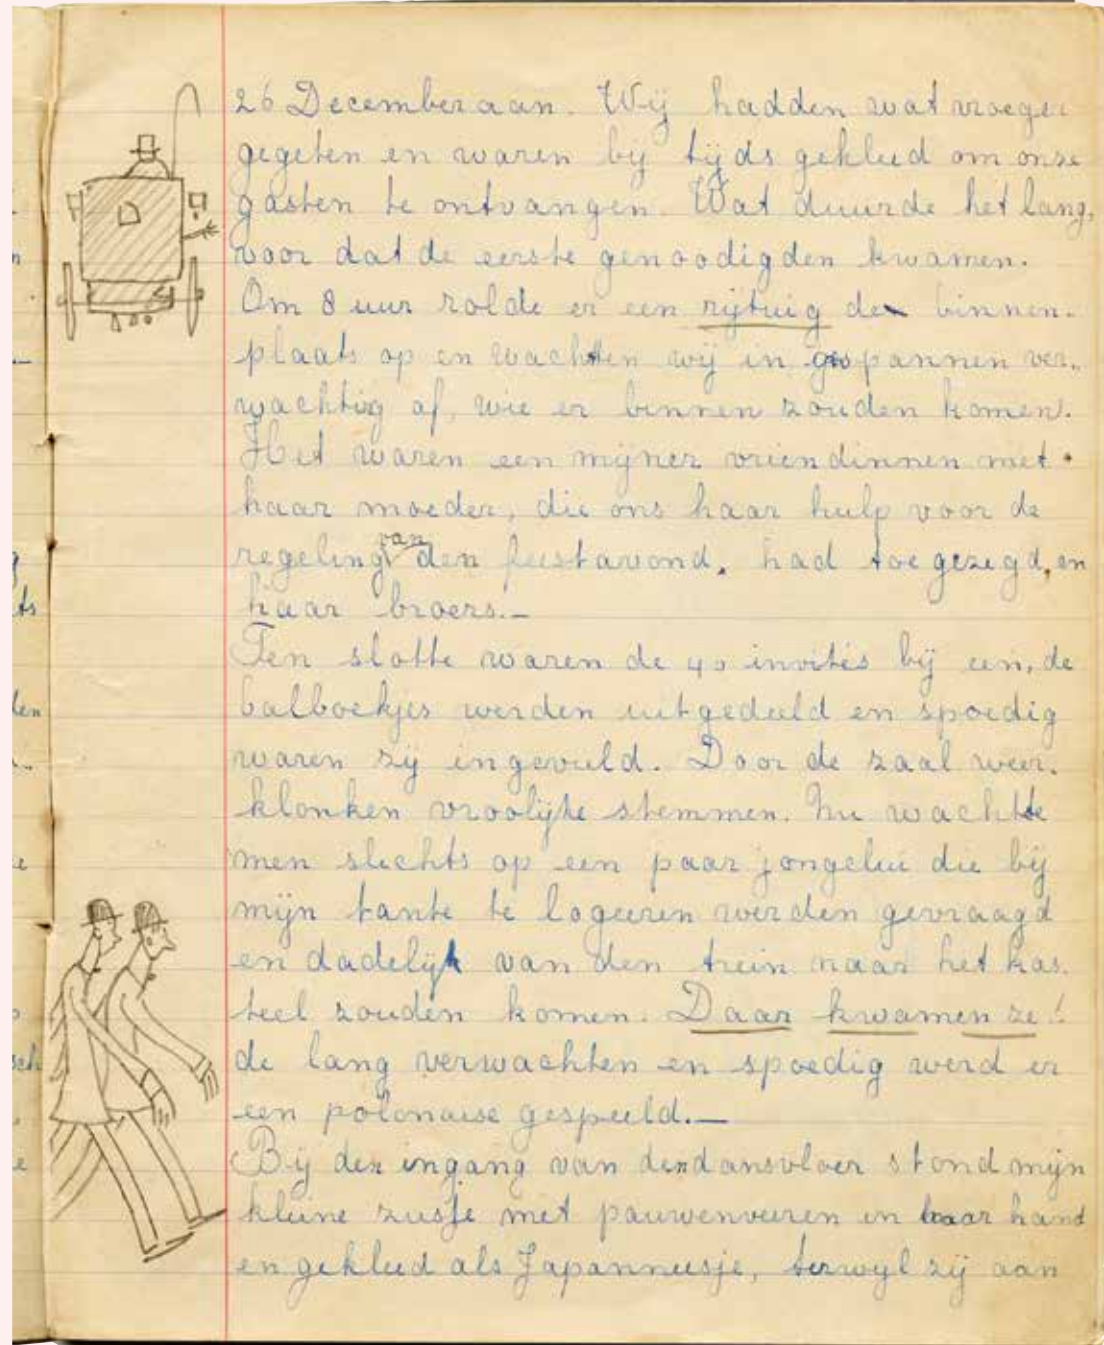 26 December aan. Wij hadden wat vroeger
gegeten en waren bij tijds gekleed om onze
gasten te ontvangen. Wat duurde het lang,
voor dat de eerste genoodigden kwamen.
Om 8 uur rolde er een rijtuig de binnen-
plaats op en wachtten wij in gespannen ver-
wachtig af, wie er binnen zouden komen.
Het waren een mijner vriendinnen met
haar moeder, die ons haar hulp voor de
regeling van den feestavond, had toegezegd, en
haar broers.—
Ten slotte waren de 40 invités bij een, de
balboekjes werden uitgedeeld en spoedig
waren zij ingevuld. Door de zaal weer-
klonken vroolijke stemmen. Nu wachtte
men slechts op een paar jongelui die bij
mijn tante te logeeren werden gevraagd
en dadelijk van den trein naar het kas-
teel zouden komen. Daar kwamen ze!
de lang verwachten en spoedig werd er
een polonaise gespeeld.—
Bij den ingang van den dansvloer stond mijn
kleine zusje met pauwenveeren in haar hand
en gekleed als Japanneesje, terwijl zij aan
ts
den
sch